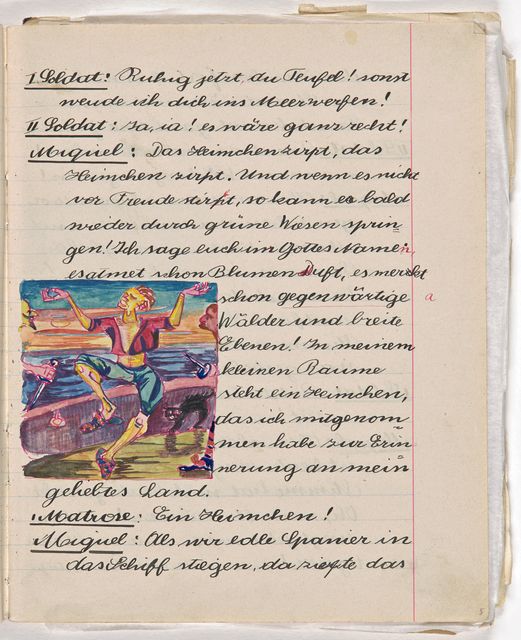 I. Soldat: Ruhig jetzt, du Teufel! sonst
werde ich dich ins Meer werfen!
II Soldat: Ja, ia! es wäre ganz recht!
Miquel: Das Heimchen zirpt, das
Heimchen zirpt. Und wenn es nicht
vor Freude stirbt, so kann es bald
wieder durch grüne Wiesen sprin=
gen! Ich sage euch im Gottes Namen,
es atmet schon Blumen Duft, es merckt
schon gegenwärtige a
Wälder und breite
Ebenen! In meinem
kleinen Raume
steht ein Heimchen,
das ich mitgenom=
men habe zur Erin=
nerung an mein
geliebtes Land.
I Matrose: Ein Heimchen!
Miguel: Als wir edle Spanier in
das Schiff stiegen, da ziepte das
5